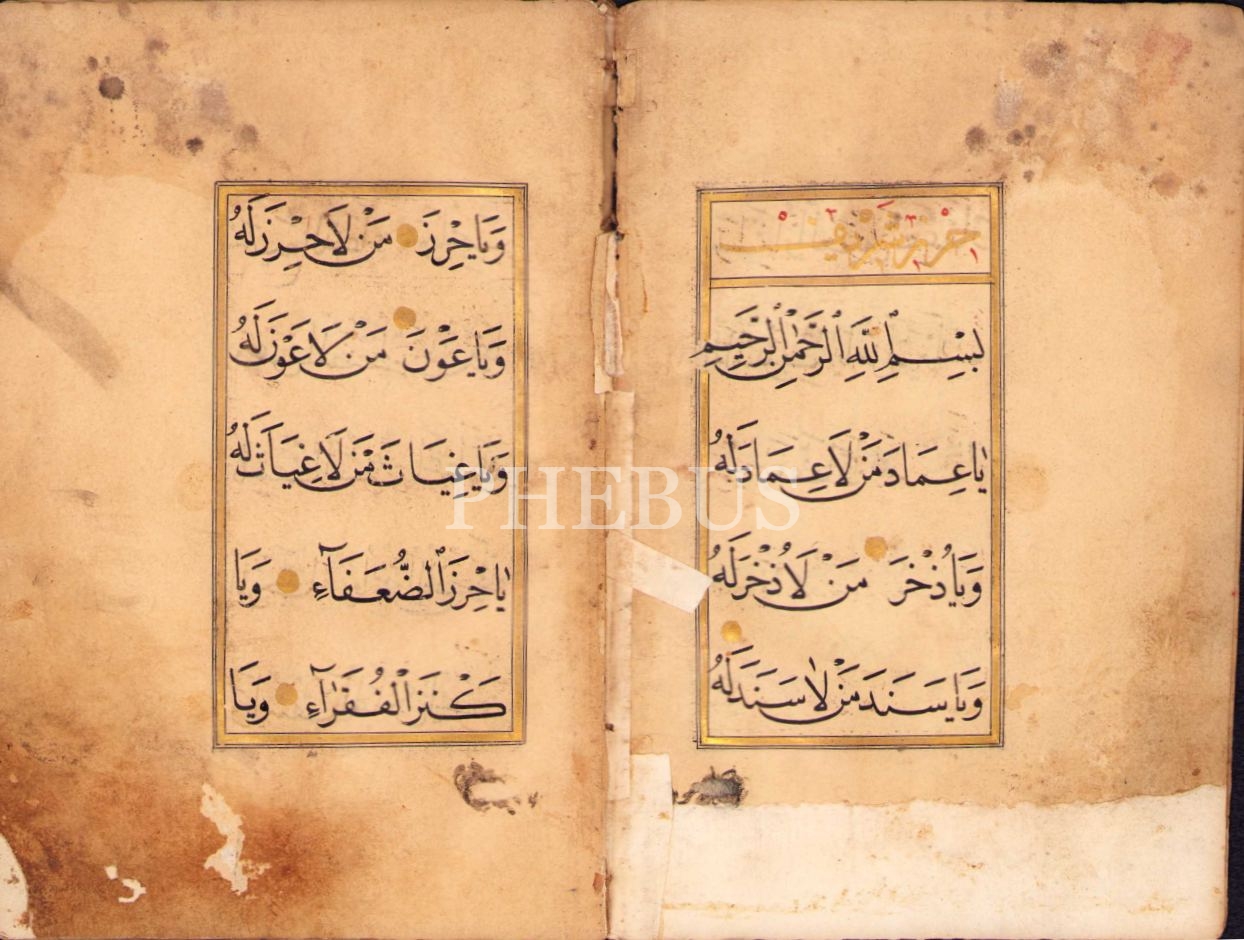 حرز شريف
بِسْمِ اللهِ الرَّحْمٰنِ الرَّحِيمِ
يَا عِمَادَ مَنْ لَا عِمَادَ لَهُ
وَيَا ذُخْرَ مَنْ لَا ذُخْرَ لَهُ
وَيَا سَنَدَ مَنْ لَا سَنَدَ لَهُ
وَيَا حِرْزَ مَنْ لَا حِرْزَ لَهُ
وَيَا عَوْنَ مَنْ لَا عَوْنَ لَهُ
وَيَا غِيَاثَ مَنْ لَا غِيَاثَ لَهُ
يَا حِرْزَ الضُّعَفَآءِ وَيَا
كَنْزَ الْفُقَرَآءِ وَيَا
PHEBUS